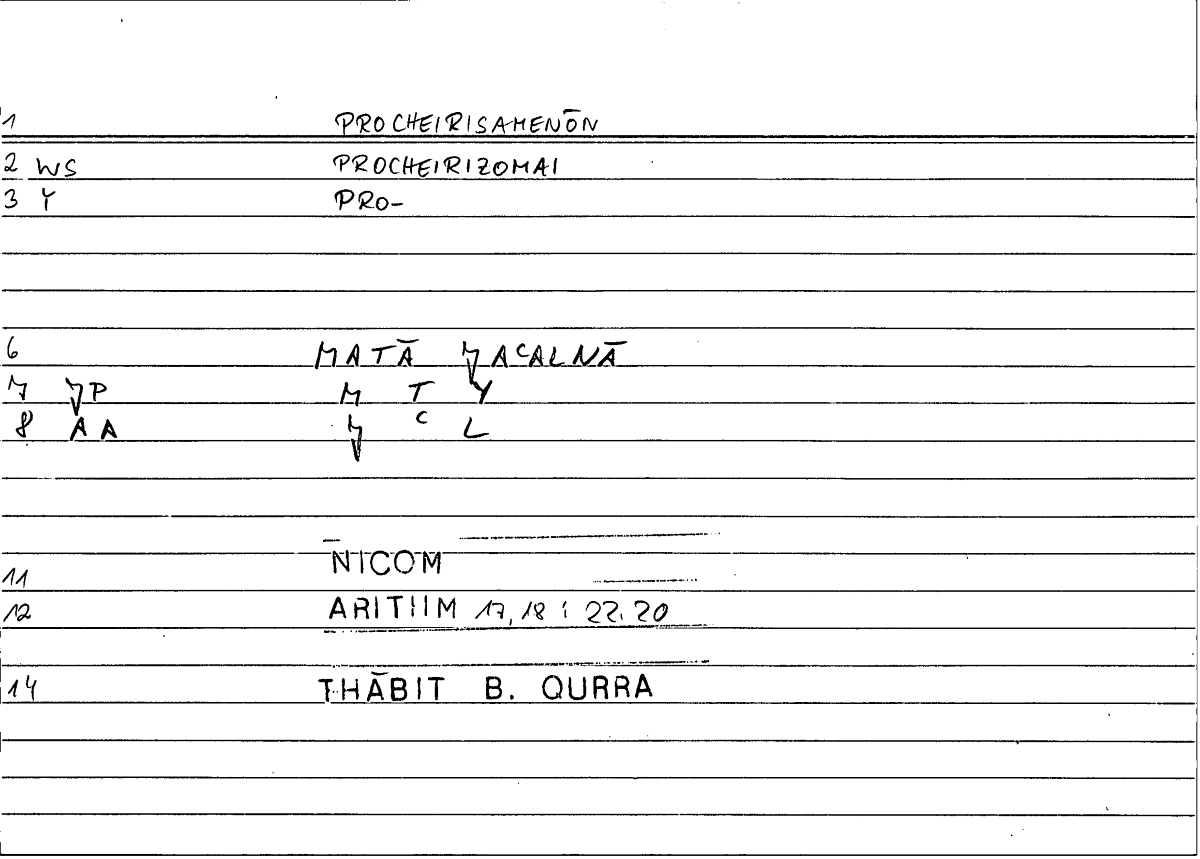 1 PROCHEIRISAMENŌN
2 WS PROCHEIRIZOMAI
3 Y PRO-
6 MATĀ ǦAʿALNĀ
7 M T Y
8 AA Ǧ ʿ L
11 NICOM
12 ARITHM 17,18 ; 22.20
14 THĀBIT B. QURRA